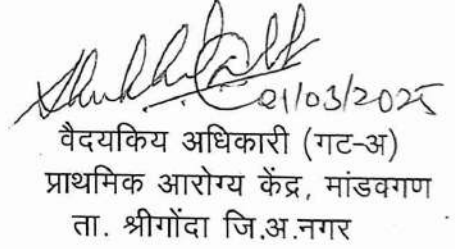 21/03/2025
वैदयकिय अधिकारी (गट-अ)
प्राथमिक आरोग्य केंद्र, मांडवगण
ता. श्रीगोंदा जि.अ.नगर